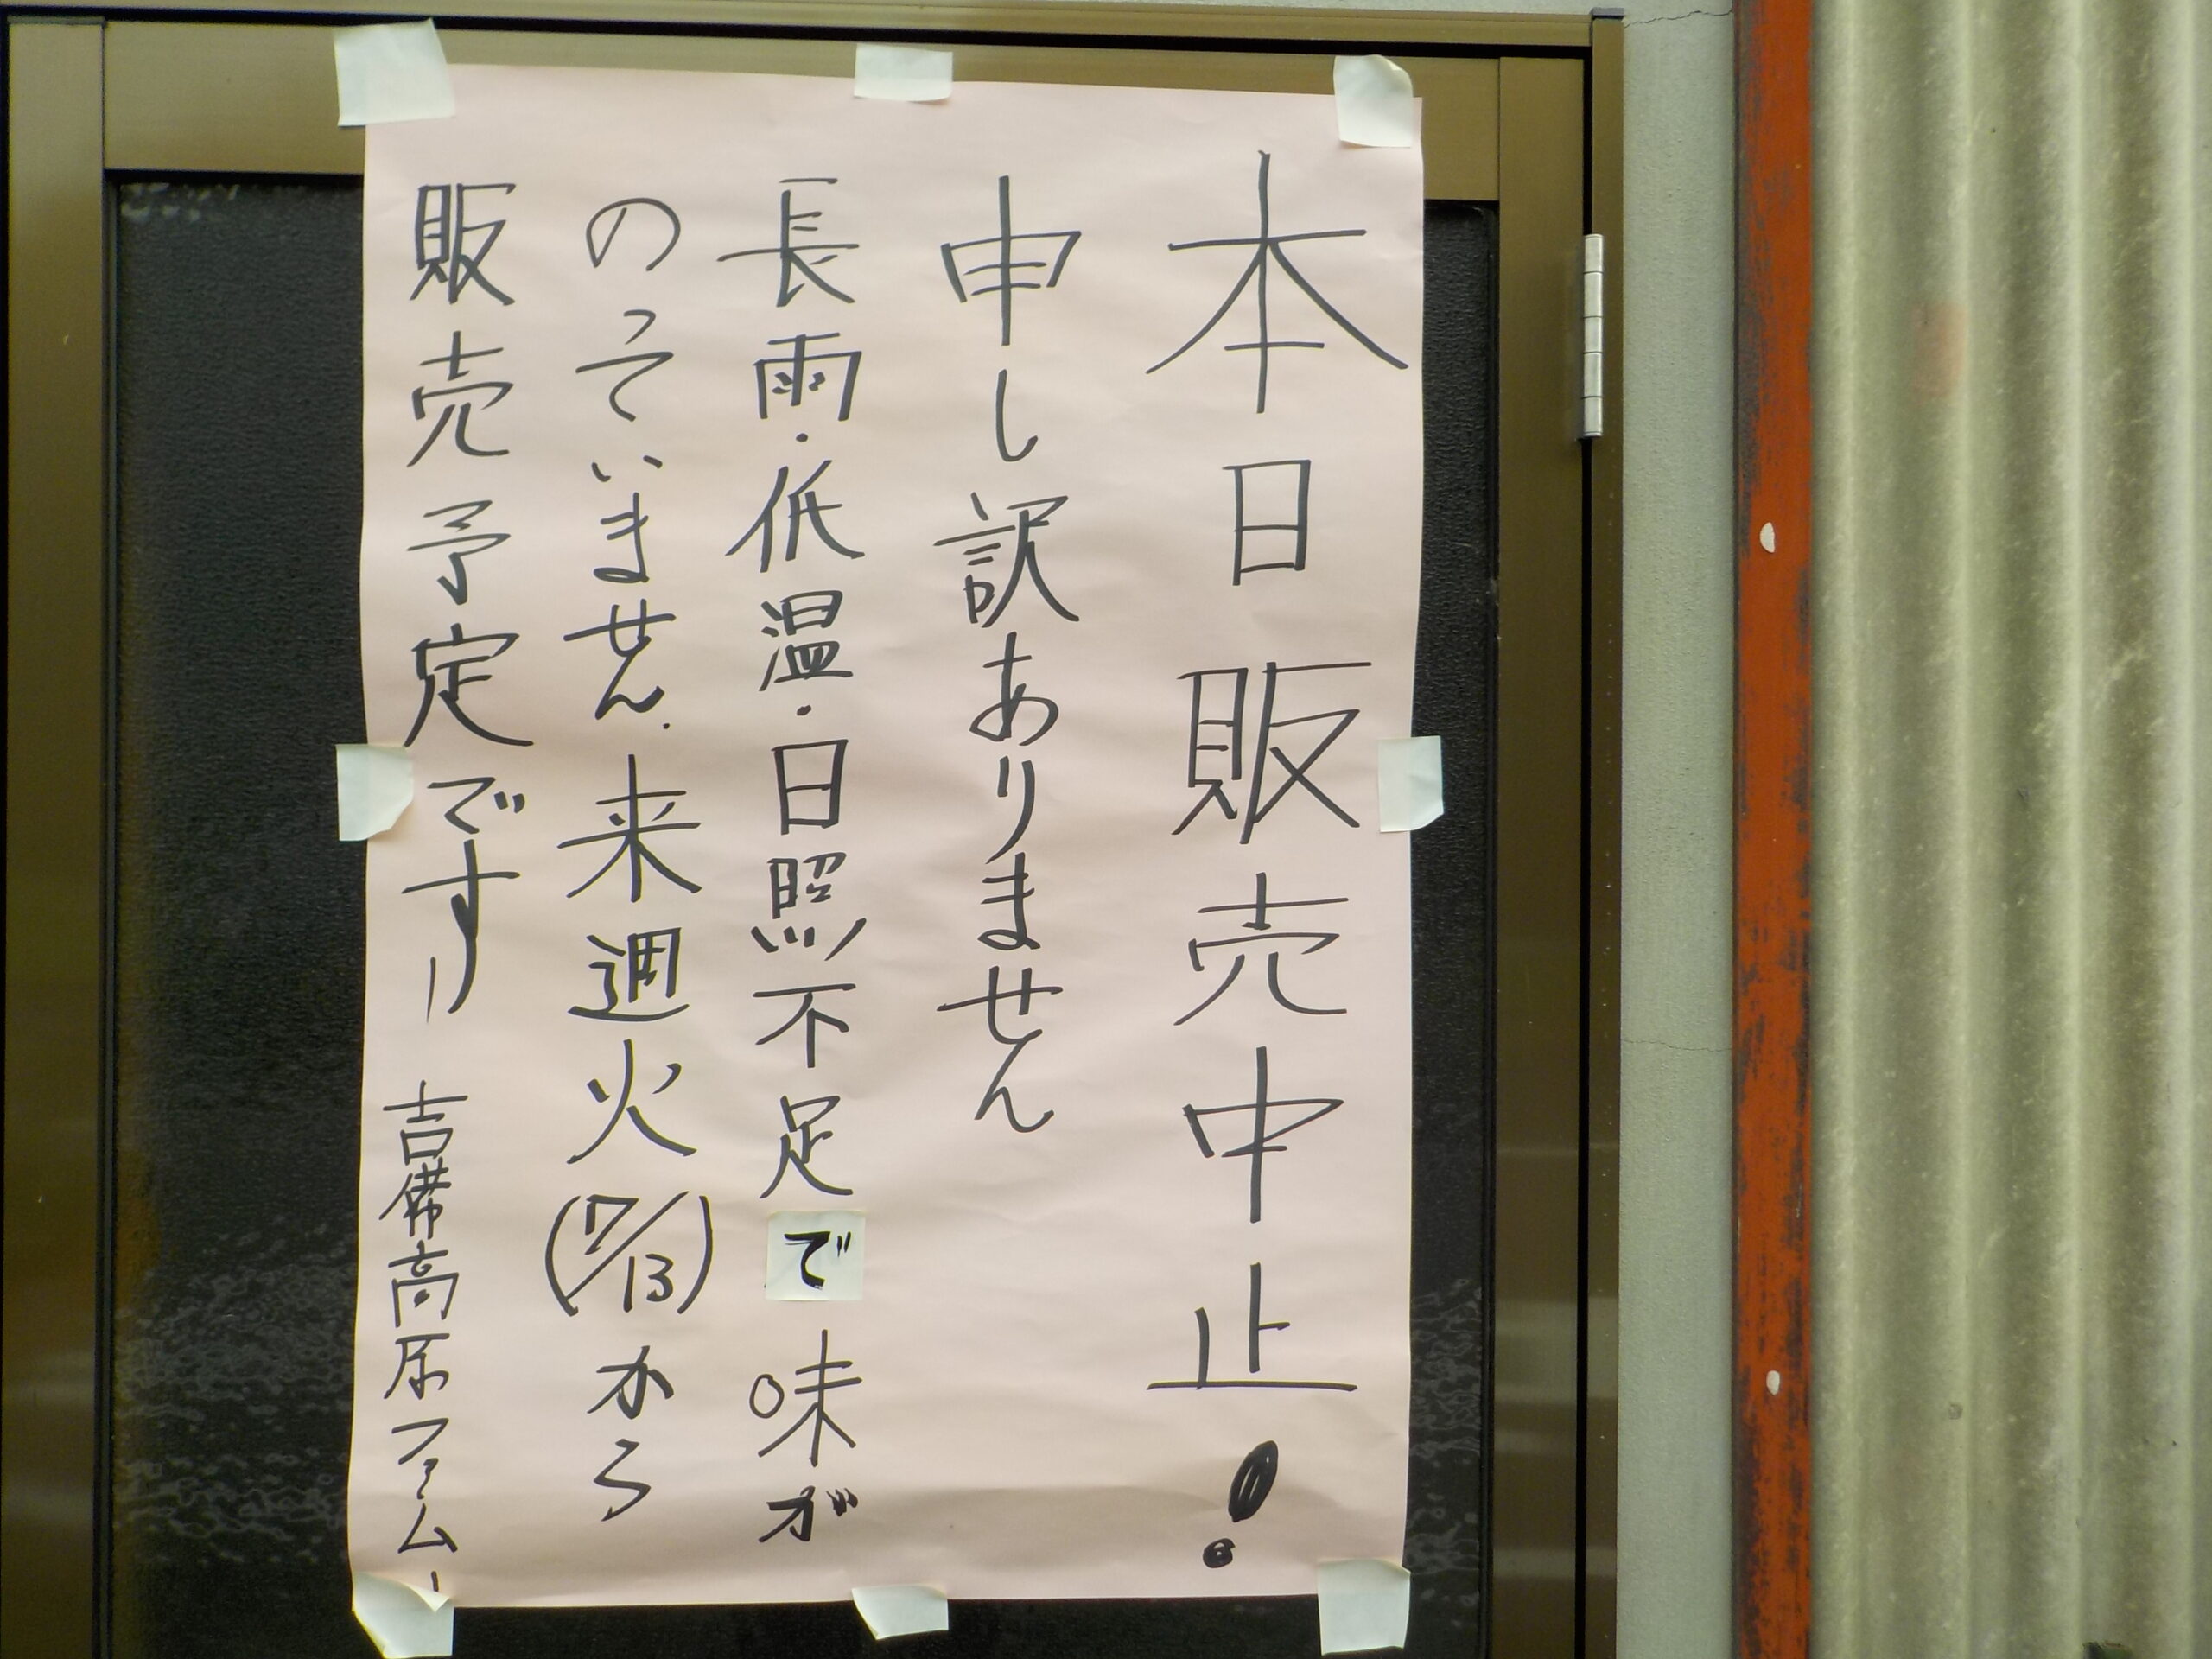 本日販売中止!
申し訳ありません
長雨・低温・日照不足で味が
のっていません.来週火(7/13)から
販売予定です
吉備高原ファーム